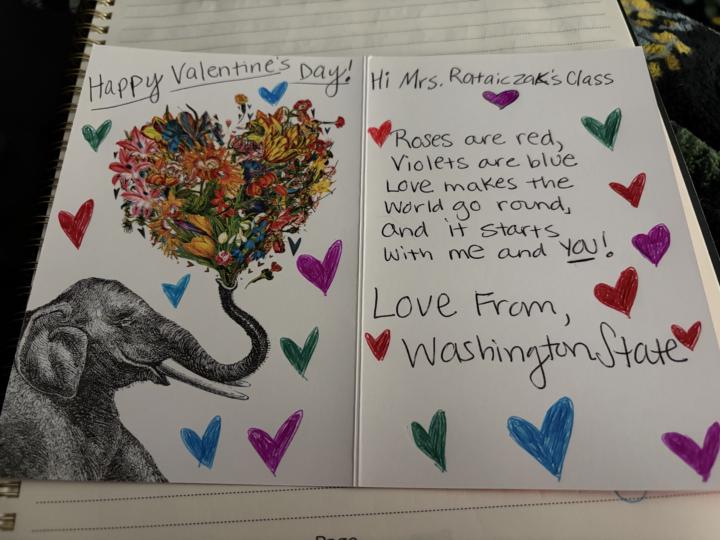 Happy Valentine's Day!
Hi Mrs. Rataiczak's Class
Roses are red,
Violets are blue
Love makes the
World go round,
and it starts
with me and you!
Love From,
Washington State
Page